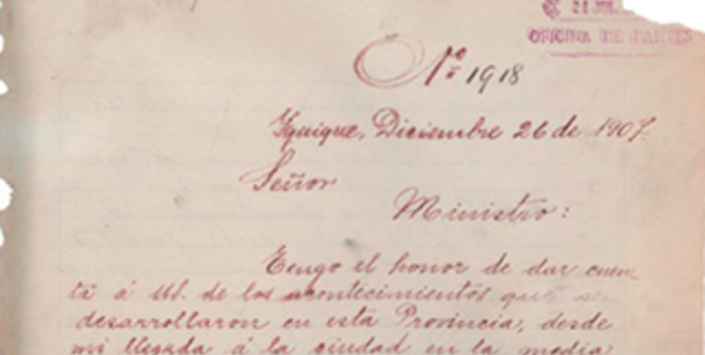 OFICINA DE PARTES
Nº 1918
Iquique, Diciembre 26 de 1907.
Señor
Ministro:
Tengo el honor de dar cuen
ta á US. de los acontecimientos que se
desarrollaron en esta Provincia, desde
mi llegada á la ciudad en la media